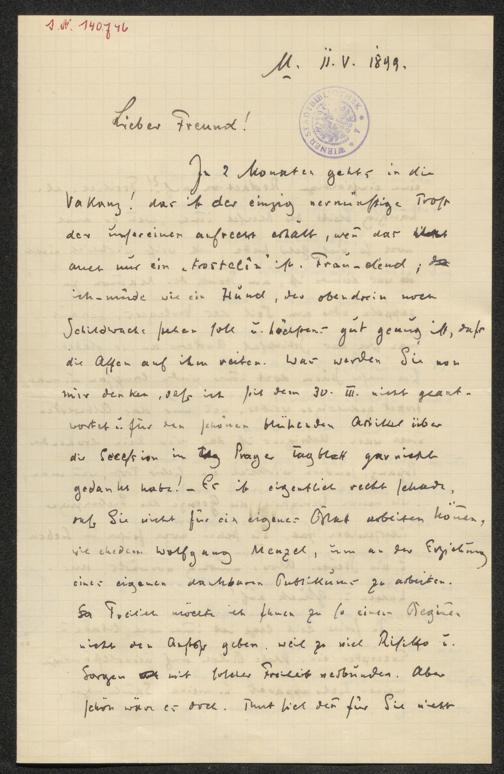 J.N. 140746
M. 11. V. 1899.
WIENER STADTBIBLIOTHEK
Lieber Freund!
In 2 Monaten gehts in die
Vakanz! das ist der einzig vernünftige Trost
der unsereinen aufrecht erhält, wen das
auch nur ein „trostelin" ist.
ich müde wie ein Hund, der obendrein noch
Schildwache stehen soll u. höchstens gut genug ist, daß
die Affen auf ihm reiten. Was werden Sie von
mir denken, daß ich seit dem 30. III. nicht geant-
wortet u. für den schönen blühenden Artikel über
die Secession im Prager Tagblatt gar nicht
gedankt habe! – Es ist eigentlich recht schade,
daß Sie nicht für ein eigenes Blatt arbeiten könen,
wie ehedem Wolfgang Menzel, um an der Erziehung
eines eigenen dankbaren Publikums zu arbeiten.
Freilich möchte ich Ihnen zu so einem Beginen
nicht den Anstoß geben, weil zu viel Risiko u.
Sorgen mit solcher Freiheit verbunden. Aber
schön wäre es doch. Thut sich den für Sie nicht